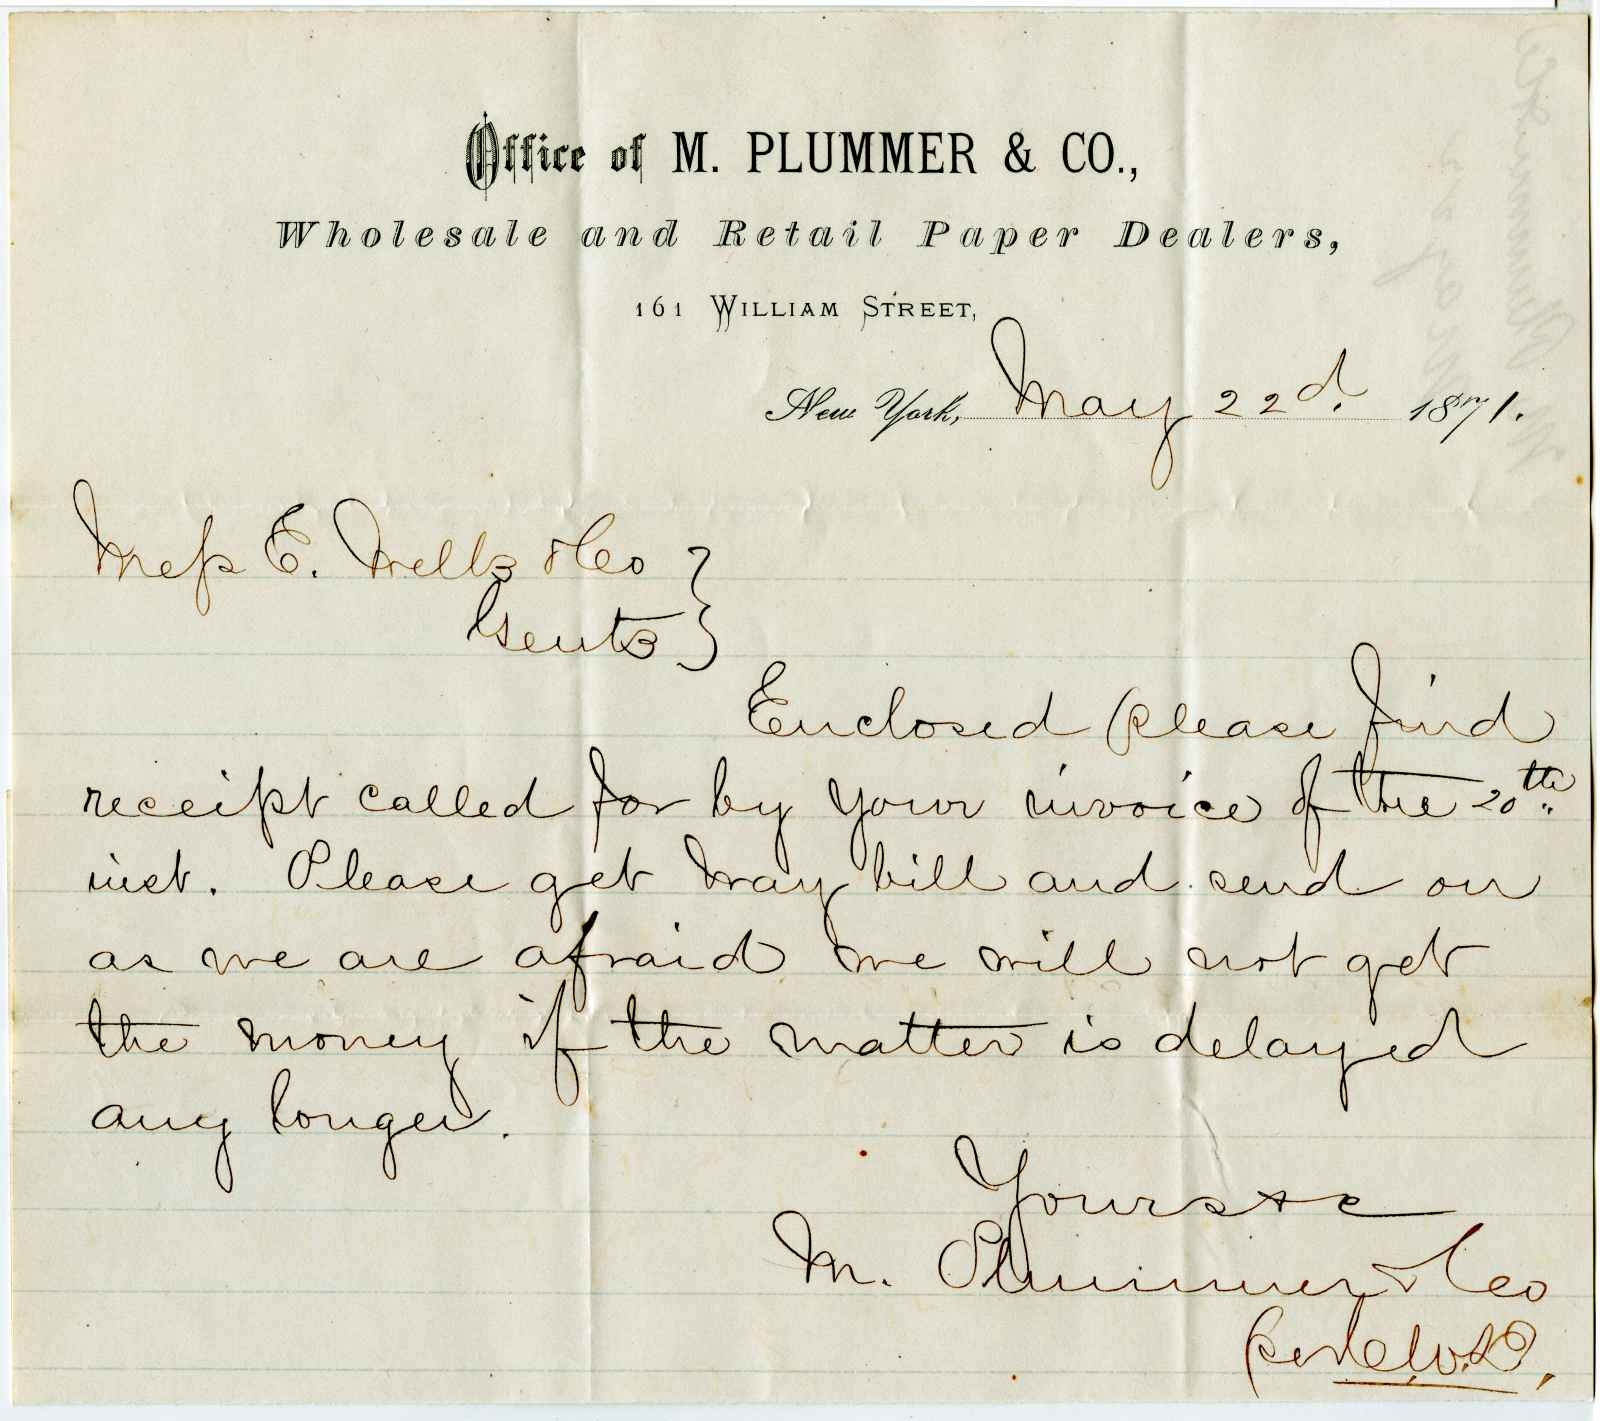 Office of M. PLUMMER & CO.,
Wholesale and Retail Paper Dealers,
161 WILLIAM STREET,
New York, May 22d. 1871.
Mess E. Wells & Co
Gents
Enclosed please find
receipt called for by your invoice of the 20th
inst. Please get way bill and send on
as we are afraid we will not get
the money if the matter is delayed
any longer.
Yours &c
M. Plummer & Co
per